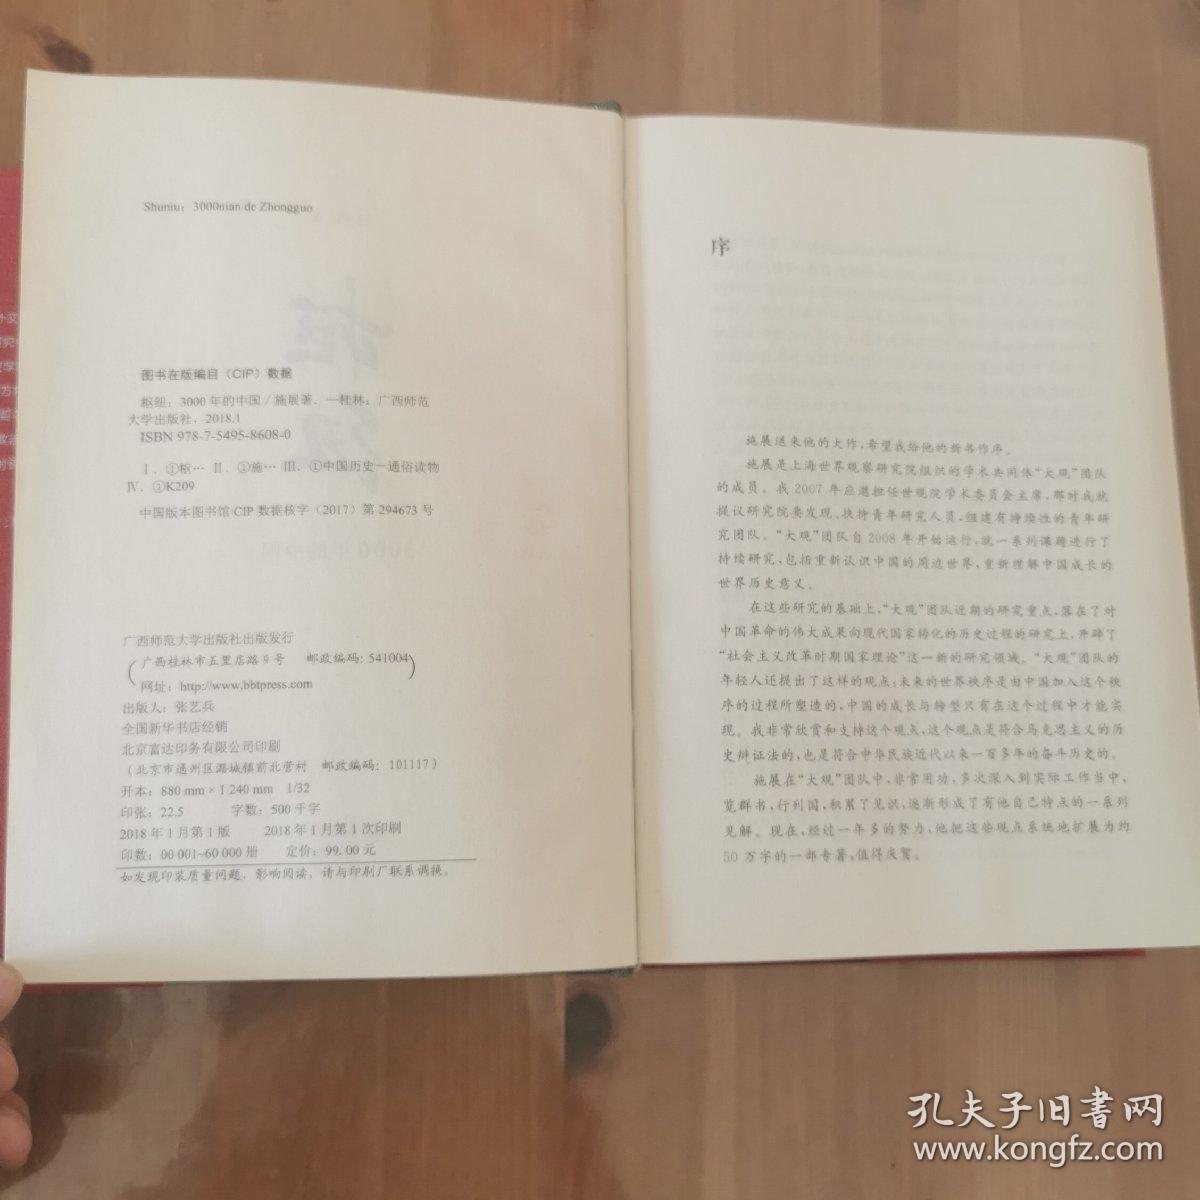 Shuniu: 3000nian de Zhongguo
图书在版编目（CIP）数据
枢纽：3000 年的中国 / 施展著. —桂林：广西师范
大学出版社，2018.1
ISBN 978-7-5495-8608-0
Ⅰ. ①枢… Ⅱ. ①施… Ⅲ. ①中国历史－通俗读物
Ⅳ. ①K209
中国版本图书馆 CIP 数据核字（2017）第 294673 号
广西师范大学出版社出版发行
（广西桂林市五里店路 9 号 邮政编码：541004
网址：http://www.bbtpress.com）
出版人：张艺兵
全国新华书店经销
北京富达印务有限公司印刷
（北京市通州区潞城镇前北营村 邮政编码：101117）
开本：880 mm × 1 240 mm 1/32
印张：22.5 字数：500 千字
2018 年 1 月第 1 版 2018 年 1 月第 1 次印刷
印数：00 001~60 000 册 定价：99.00 元
如发现印装质量问题，影响阅读，请与印刷厂联系调换。
序
施展送来他的大作，希望我给他的新书作序。
施展是上海世界观察研究院组织的学术共同体“大观”团队
的成员。我 2007 年应邀担任世观院学术委员会主席，那时我就
提议研究院要发现、扶持青年研究人员，组建有持续性的青年研
究团队。“大观”团队自 2008 年开始运行，就一系列课题进行了
持续研究，包括重新认识中国的周边世界，重新理解中国成长的
世界历史意义。
在这些研究的基础上，“大观”团队近期的研究重点，落在了对
中国革命的伟大成果向现代国家转化的历史过程的研究上，开辟了
“社会主义改革时期国家理论”这一新的研究领域。“大观”团队的
年轻人还提出了这样的观点：未来的世界秩序是由中国加入这个秩
序的过程所塑造的，中国的成长与转型只有在这个过程中才能实
现。我非常欣赏和支持这个观点，这个观点是符合马克思主义的历
史辩证法的，也是符合中华民族近代以来一百多年的奋斗历史的。
施展在“大观”团队中，非常用功，多次深入到实际工作当中，
览群书，行列国，积累了见识，逐渐形成了有他自己特点的一系列
见解。现在，经过一年多的努力，他把这些观点系统地扩展为约
50 万字的一部专著，值得庆贺。
孔夫子旧书网
www.kongfz.com